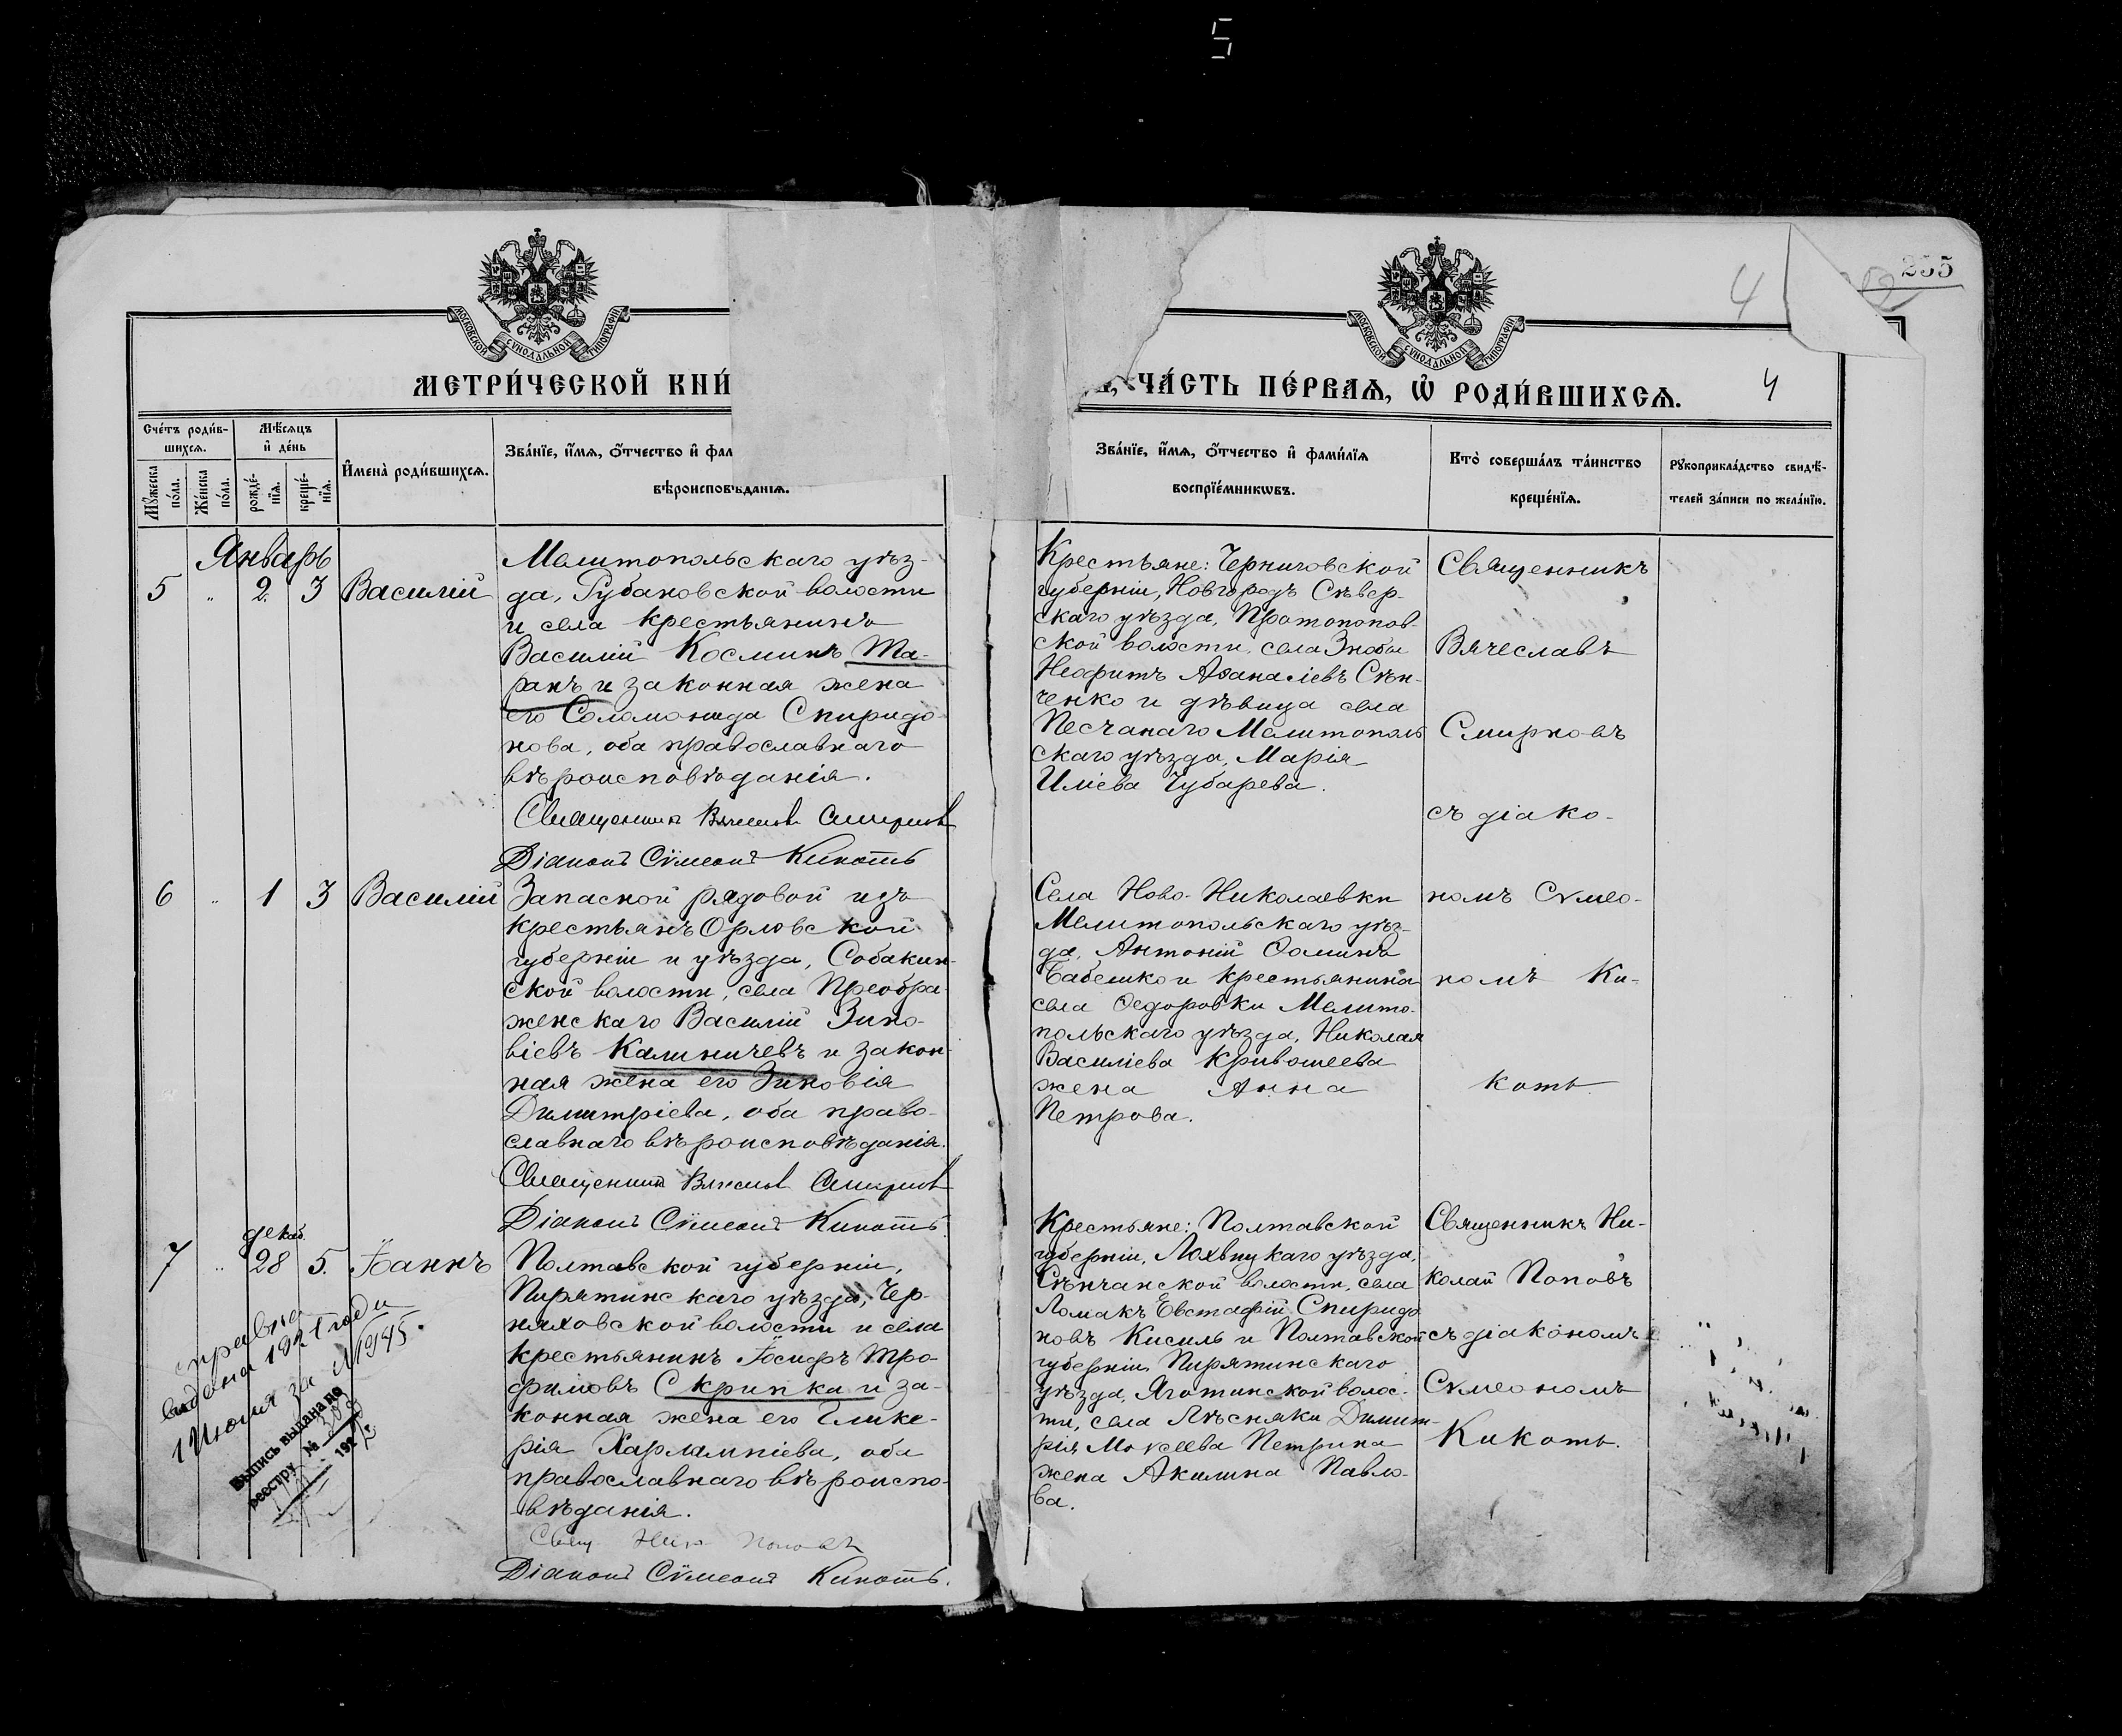 5
255
4
МОСКОВСКОЙ СѴНОДАЛЬНОЙ ТИПОГРАФІИ
МОСКОВСКОЙ СѴНОДАЛЬНОЙ ТИПОГРАФІИ
МЕТРИ́ЧЕСКОЙ КНИ́
ЧА́СТЬ ПЕ́РВАЯ, Ѽ РОДИ́ВШИХСЯ.
4
Сче́тъ роди́в-
шихся.
Мꙋ́жеска по́ла.
Же́нска по́ла.
Мѣ́сяцъ
и҆ де́нь
рожде́-
нїя.
креще́-
нїя.
И҆мена̀ роди́вшихся.
Зва́нїе, и҆́мя, ѻ҆́тчество и҆ фа
вѣроисповѣ́данїя.
Зва́нїе, и҆́мя, ѻ҆́тчество и҆ фами́лїя
воспрїе́мникѡвъ.
Кто̀ соверша́лъ та́инство
креще́нїя.
Рꙋкоприкла́дство свидѣ́-
телей за́писи по жела́нїю.
Январь
5 " 2. 3 Василій
Мелитопольскаго уѣз-
да, Рубановской волости
и села крестьянинъ
Василій Косминъ Та-
ранъ и законная жена
его Соломонида Спиридо-
нова, оба православнаго
вѣроисповѣданія.
Священникъ Вячеславъ Смирновъ
Діаконъ Сѵмеонъ Кикоть
Крестьяне: Черниговской
губерніи, Новгородъ Сѣвер-
скаго уѣзда, Протопопов-
ской волости, села Знобы
Неофитъ Аѳанасіевъ Сѣн-
ченко и дѣвица села
Песчанаго Мелитополь
скаго уѣзда, Марія
Иліева Чубарева.
Священникъ
Вячеславъ
Смирновъ
съ діако-
6 " 1 3 Василій
Запасной рядовой изъ
крестьянъ Орловской
губерніи и уѣзда, Собакин-
ской волости, села Преобра-
женскаго Василій Зино-
віевъ Калиничевъ и закон-
ная жена его Зиновія
Димитріева, оба право-
славнаго вѣроисповѣданія.
Священникъ Вячеславъ Смирновъ
Діаконъ Сѵмеонъ Кикоть
Села Ново-Николаевки
Мелитопольскаго уѣз-
да, Антоній Ѳоминъ
Бабешко и крестьянина
села Ѳедоровки Мелито-
польскаго уѣзда, Николая
Василіева Кривошеева
жена Анна
Петрова.
номъ Сѵмео-
номъ Ки-
коть
декаб.
7 " 28 5. Іоаннъ
Полтавской губерніи,
Пирятинскаго уѣзда, Чер-
няховской волости и села
крестьянинъ Іосифъ Тро-
фимовъ Скрипка и за-
конная жена его Глике-
рія Харлампіева, оба
православнаго вѣроиспо-
вѣданія.
Свящ Ник Поповъ
Діаконъ Сѵмеонъ Кикоть.
Крестьяне: Полтавской
губерніи, Лохвицкаго уѣзда,
Сѣнчанской волости, села
Ломакъ Евстафій Спиридо
новъ Кисиль и Полтавской
губерніи Пирятинскаго
уѣзда, Яготинской волос-
ти, села Лѣсняки Димит-
рія Моѵсеева Петрика
жена Акилина Павло-
ва.
Священникъ Ни-
колай Поповъ
съ діакономъ
Сѵмеономъ
Кикоть.
справка
видана 1921 года
1 Июня за №1945.
Выпись выдана по
реестру №
192